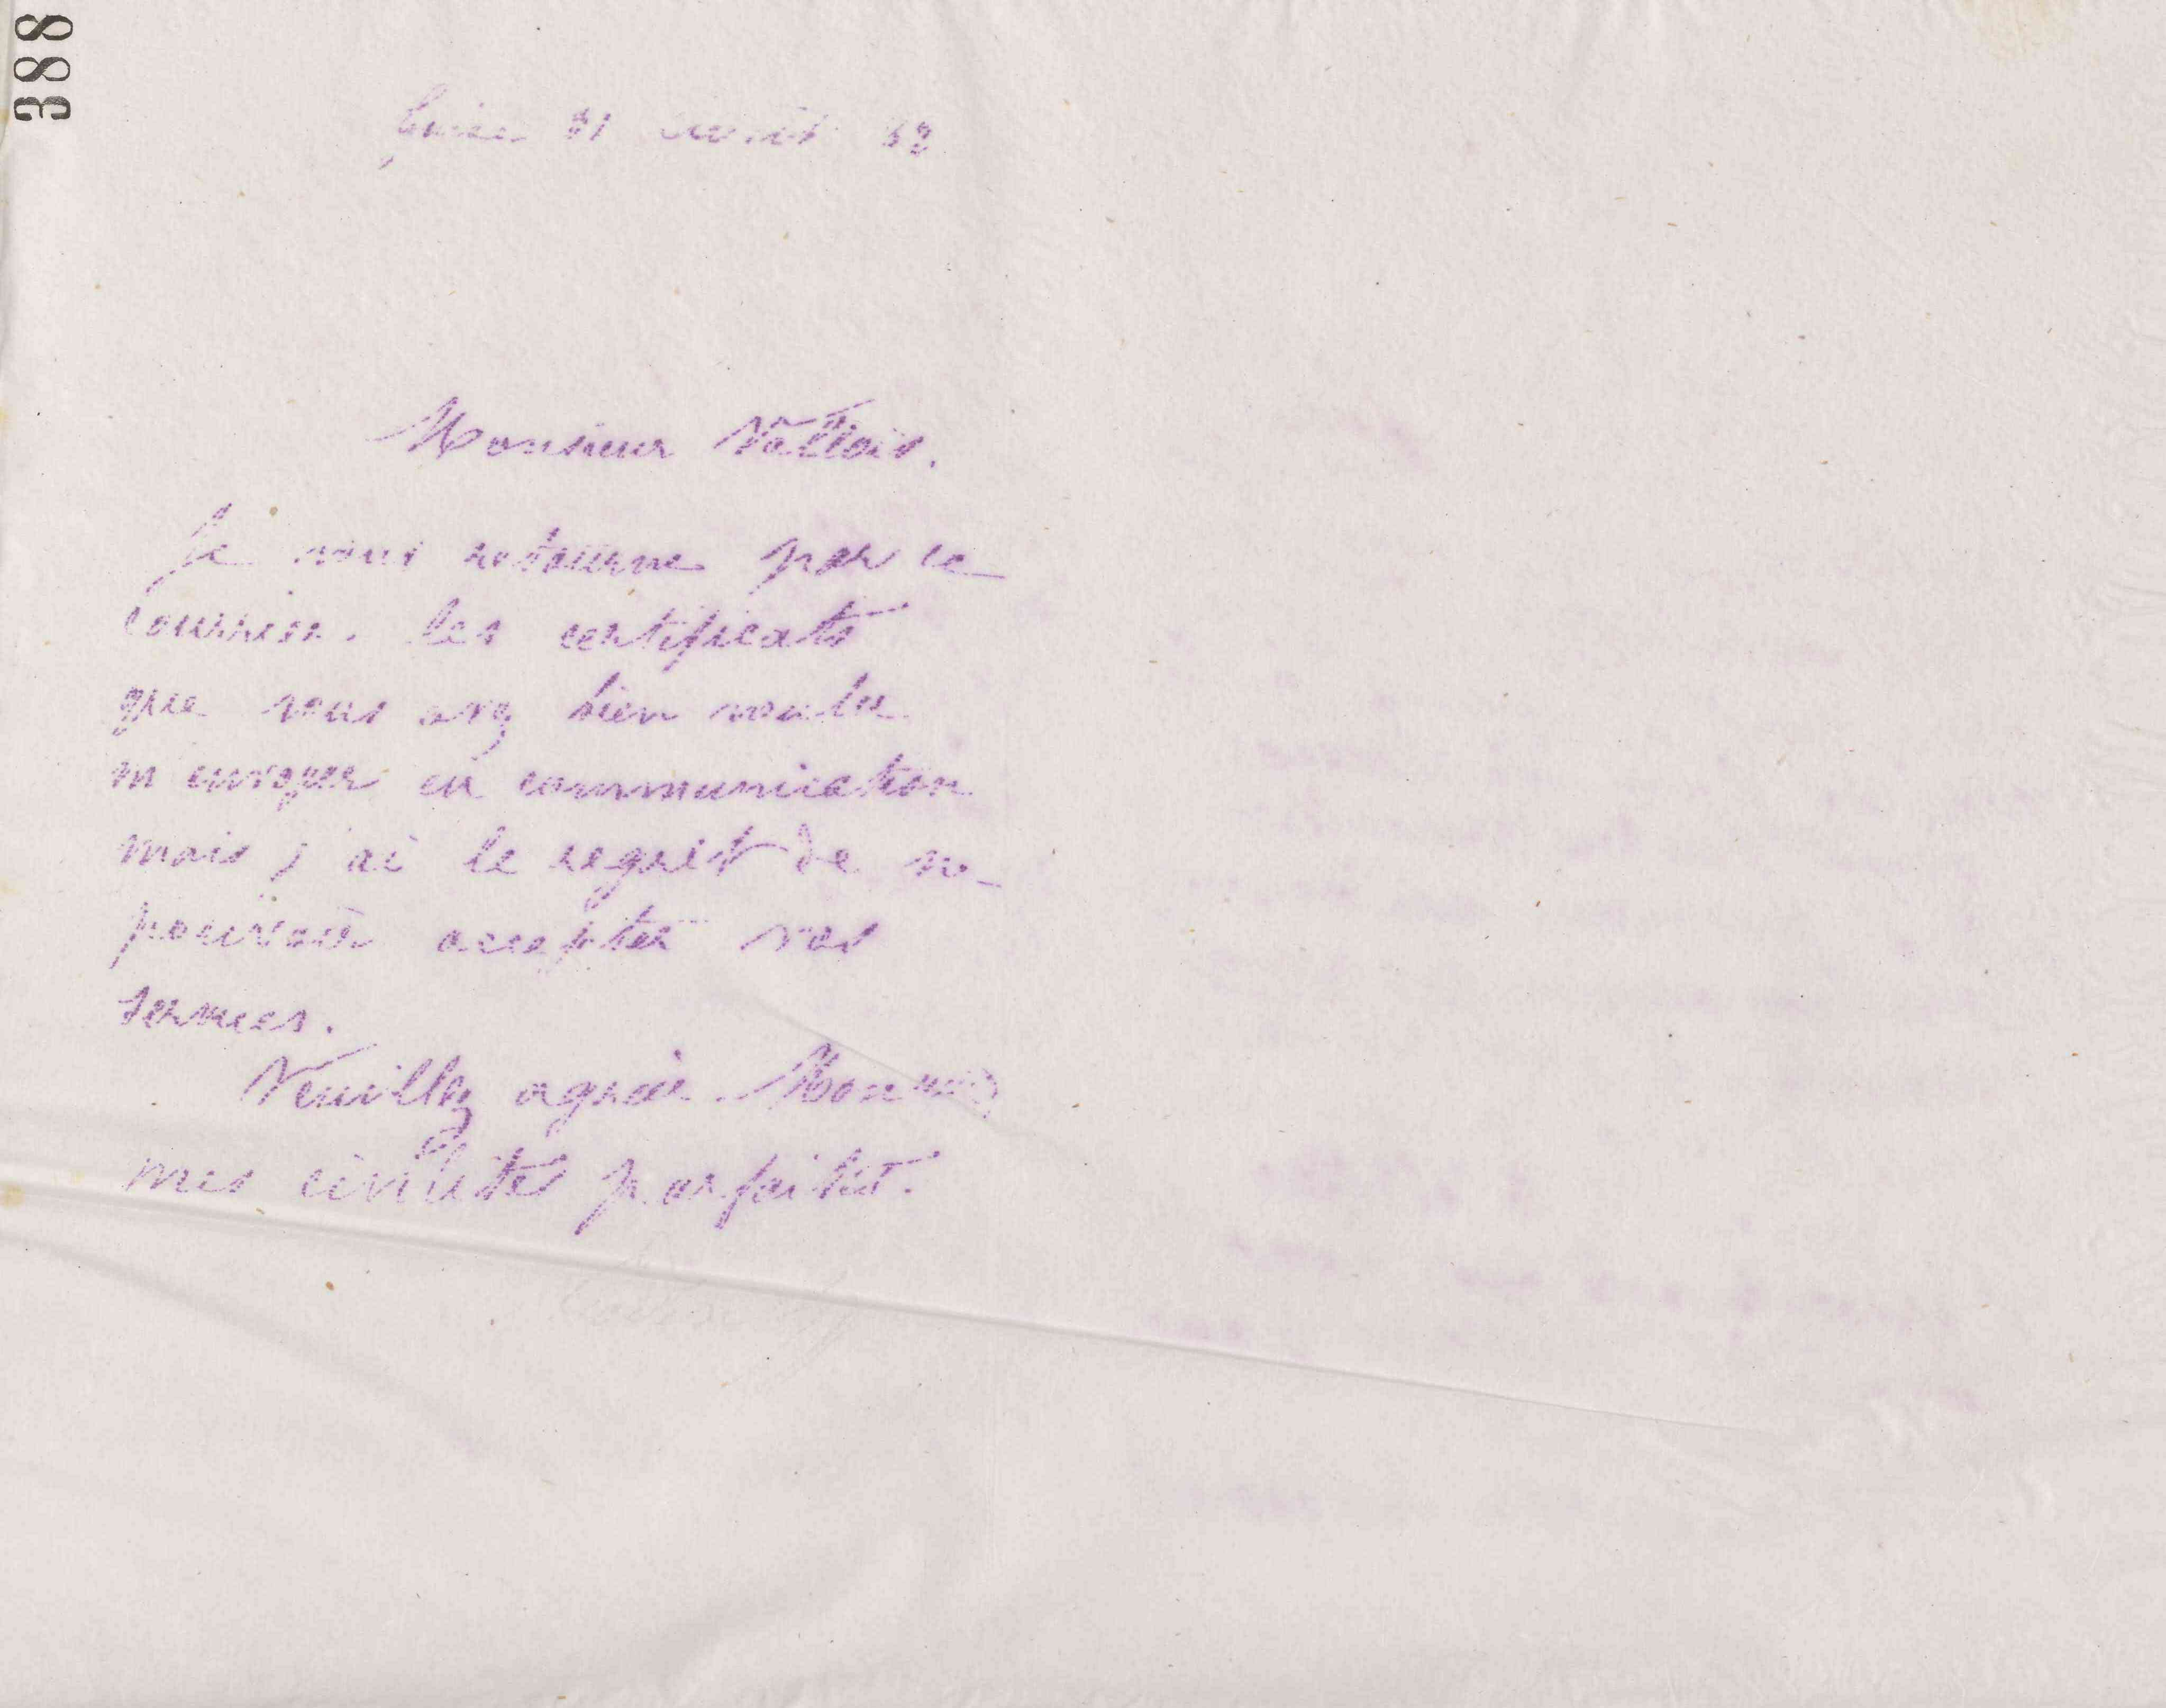 388
Guise 21 avril
Monsieur Vallois.
Je vous retourne par ce
courrier. les certificats
que vous avez bien voulu
m envoyer en communication
mais j ai le regret de ne
pouvoir accepter vos
services.
Veuillez agréer. Monsieur
mes civilités parfaites.